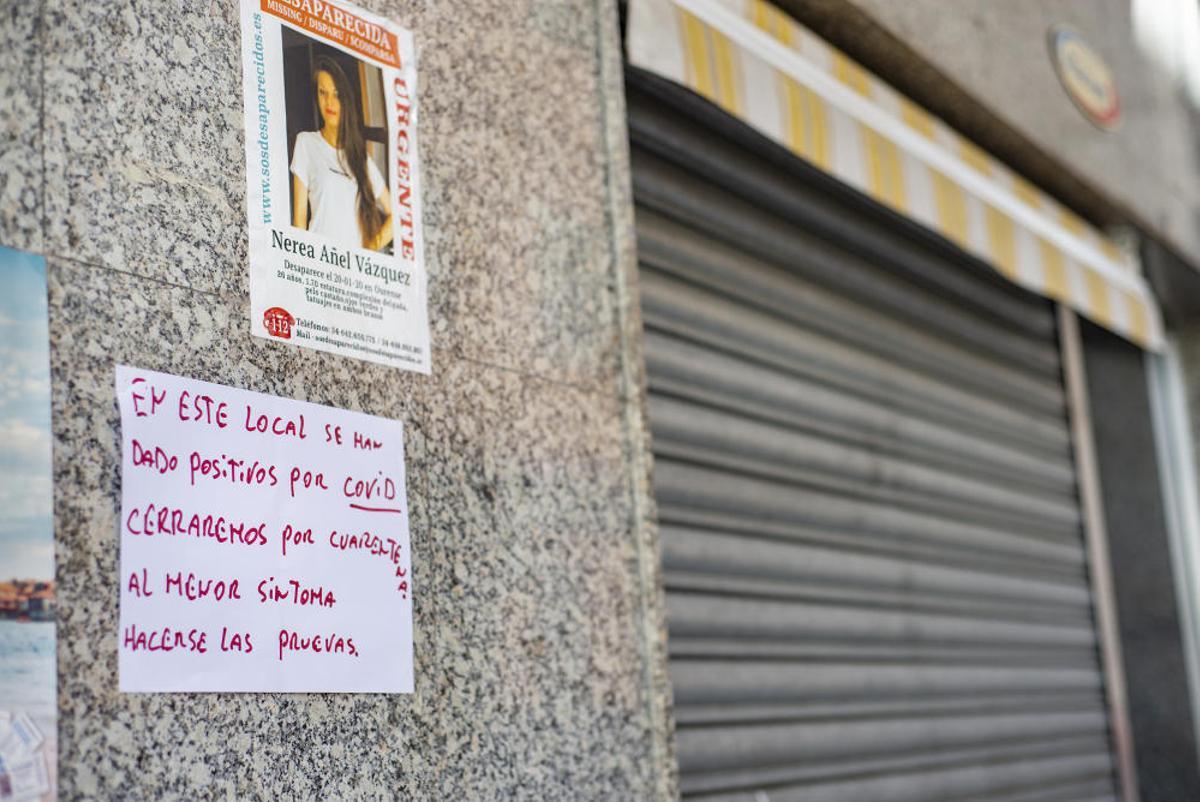 DESAPARECIDA
MISSING / DISPARU / SCOMPARSA
www.sosdesaparecidos.es
URGENTE
Nerea Añel Vázquez
Desaparece el 20-01-20 en Ourense
26 años, 1.70 estatura, complexión delgada,
pelo castaño, ojos verdes y
tatuajes en ambos brazos
112
Teléfonos:
Mail - sosdesaparecidos@sosdesaparecidos.es
EN ESTE LOCAL SE HAN
DADO POSITIVOS POR COVID
CERRAREMOS POR CUARENTENA.
AL MENOR SINTOMA
HACERSE LAS PRUEVAS.